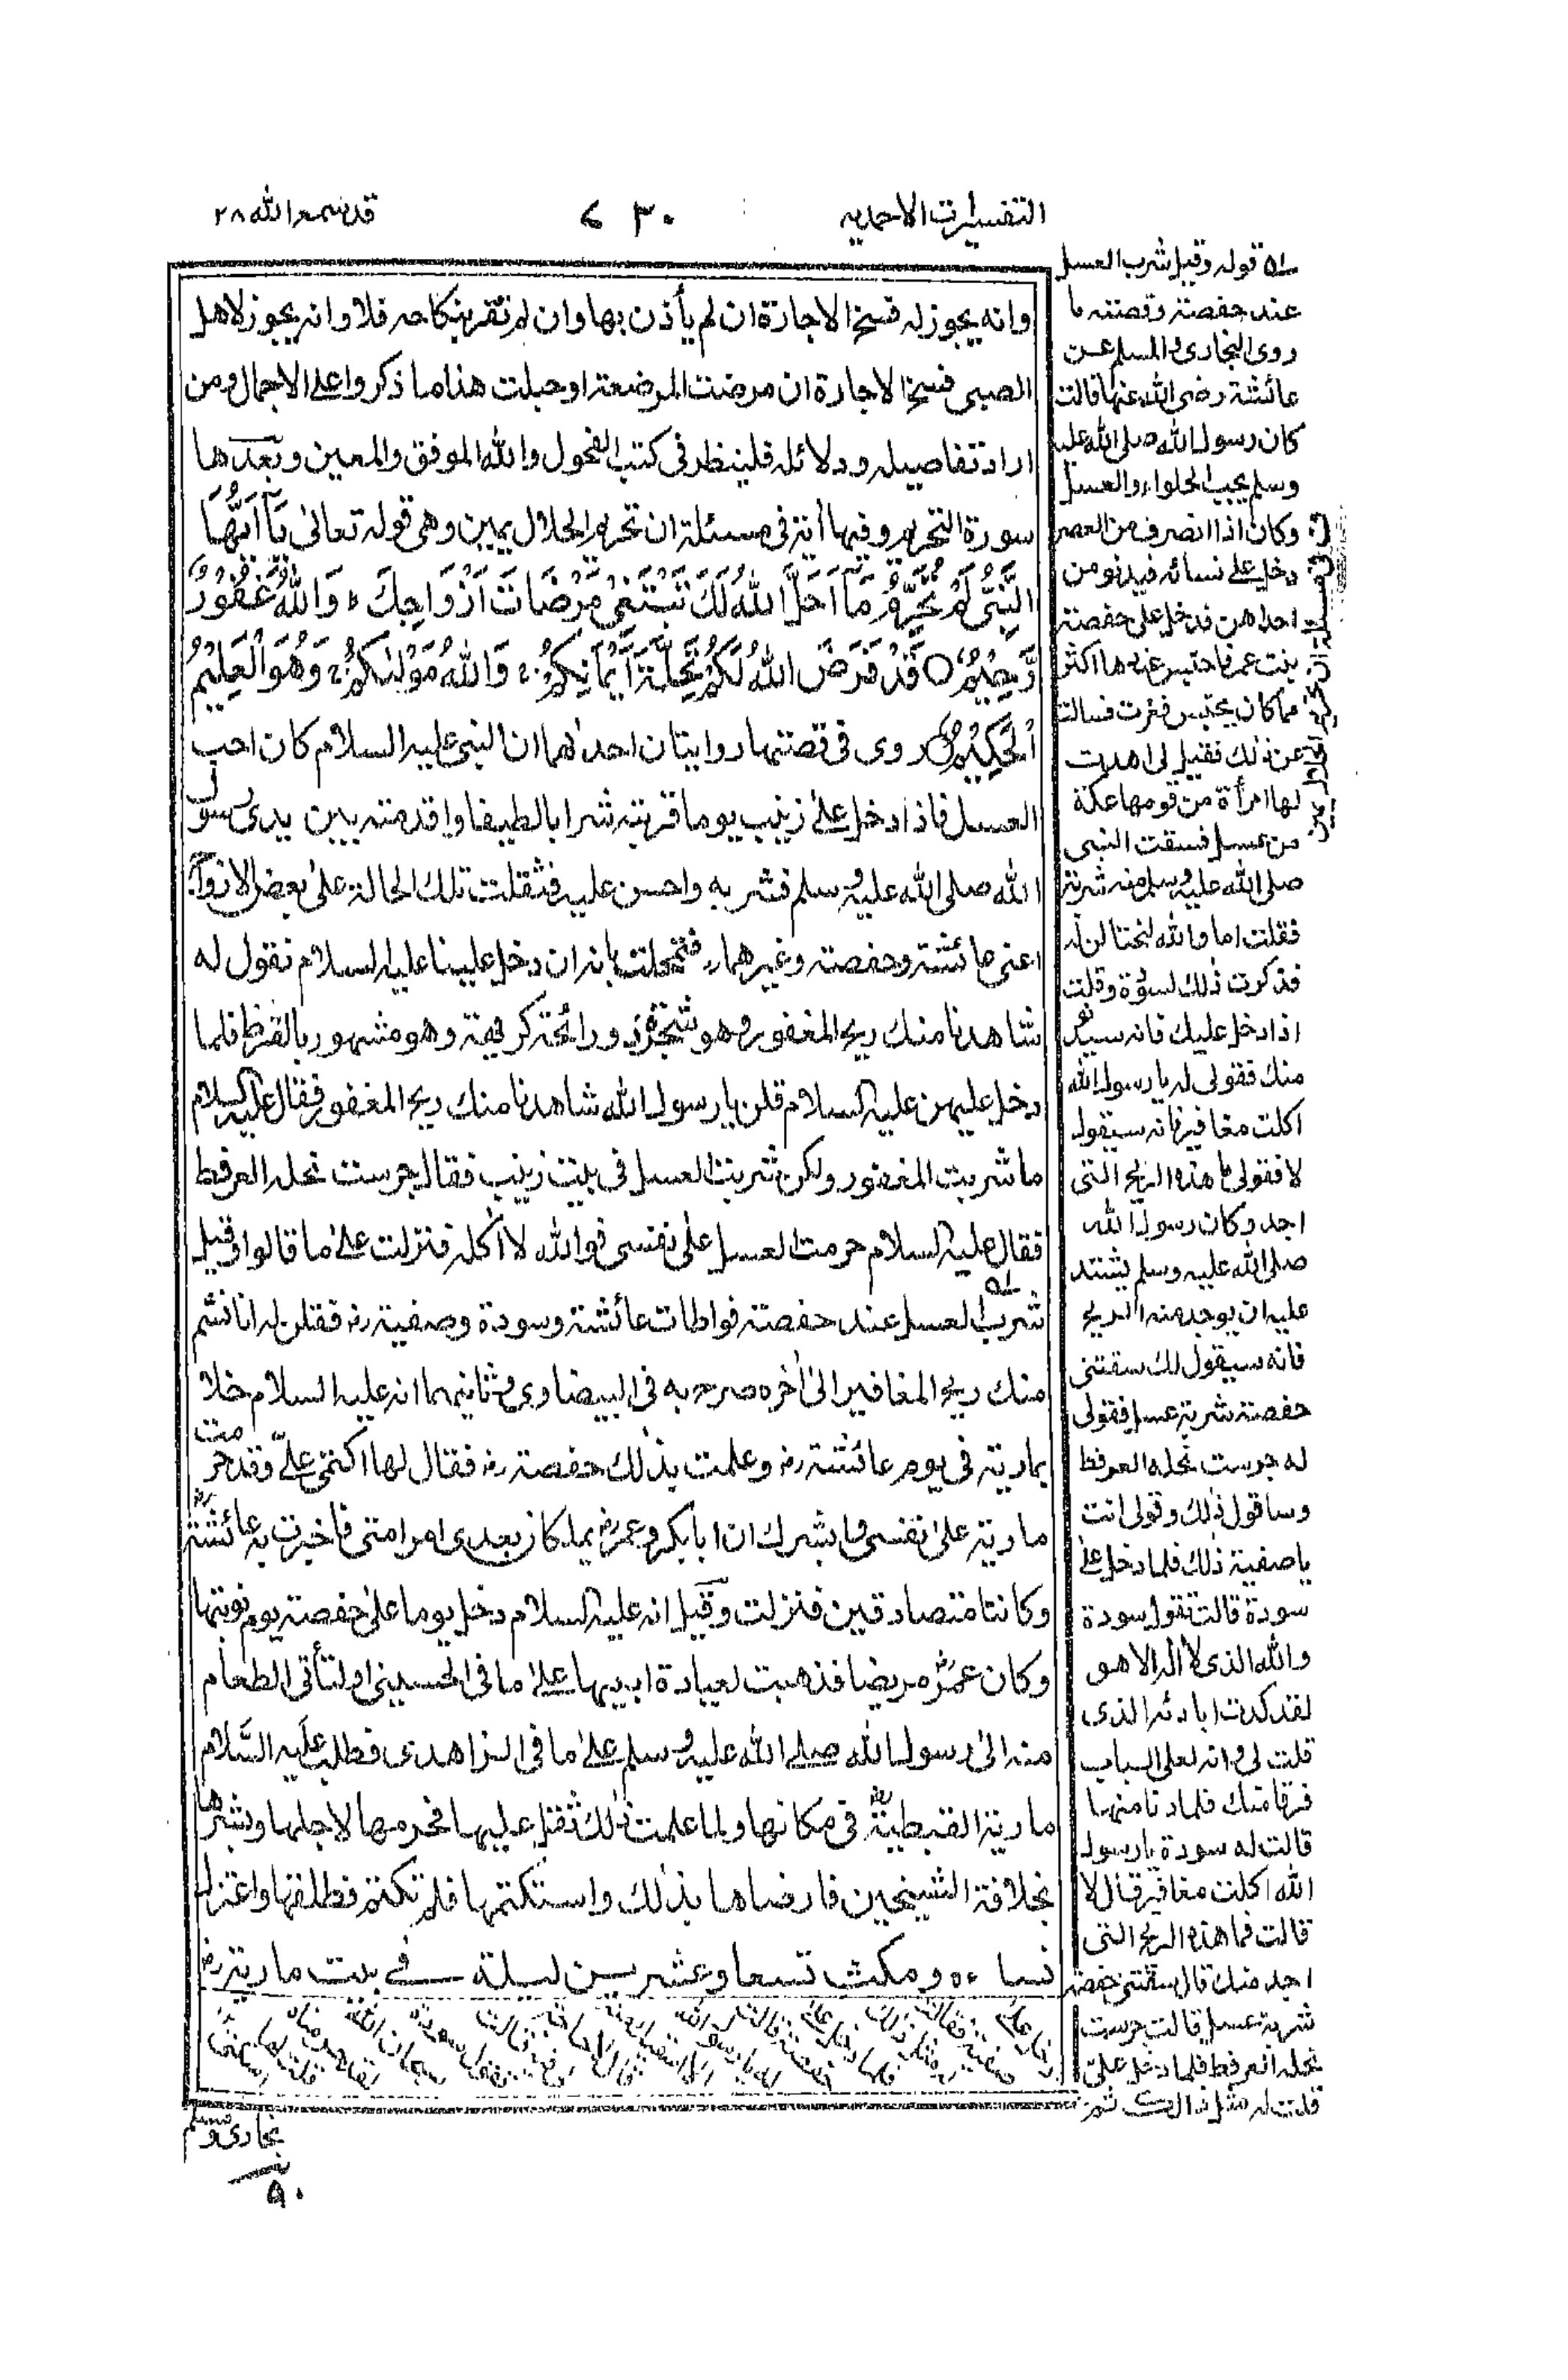 التفسيرات الاحمديه
٧٣٠
قد سمع الله ٢٨
وانه يجوز له فسخ الاجارة ان لم يأذن بها وان لم تقر بنكاحه فلا وانه يجوز لاهل
الصبي فسخ الاجارة ان مرضت المرضعة او حبلت هذا ما ذكروا على الاجمال ومن
اراد تفاصيله ودلائله فلينظر في كتب الفحول والله الموفق والمعين وبعدها
سورة التحريم وفيها اٰية في مسئلة ان تحريم الحلال يمين وهى قوله تعالىٰ يٰٓاَيُّهَا
النَّبِيُّ لِمَ تُحَرِّمُ مَآ اَحَلَّ اللّٰهُ لَكَ تَبْتَغِيْ مَرْضَاتَ اَزْوَاجِكَ ؕ وَاللّٰهُ غَفُوْرٌ
رَّحِيْمٌ ○ قَدْ فَرَضَ اللّٰهُ لَكُمْ تَحِلَّةَ اَيْمَانِكُمْ ۚ وَاللّٰهُ مَوْلٰىكُمْ ۚ وَهُوَ الْعَلِيْمُ
الْحَكِيْمُ ○ روى في قصتها روايتان احدٰهما ان النبي عليه السلام كان احب
العسل فاذا دخل علىٰ زينب يوما قربته شرابا لطيفا واقدمته بين يدى رسول
الله صلى الله عليه وسلم فشربه واحسن عليه فثقلت تلك الحالة علىٰ بعض الازواج
اعنى عائشة وحفصة وغيرهما رض فتمحلت بانه ان دخل علينا عليه السلام نقول له
شاهدنا منك ريح المغفور وهو شجر ذو رائحة كريهة وهو مشهور بالقنطر فلما
دخل عليهن عليه السلام قلن يا رسول الله شاهدنا منك ريح المغفور فقال عليه السلام
ما شربت المغفور ولكن شربت العسل في بيت زينب فقال جرست نحله العرفط
فقال عليه السلام حرمت العسل علىٰ نفسى فوالله لا اٰكله فنزلت علىٰ ما قالوا وقيل
شرب العسل عند حفصة فواطات عائشة وسودة وصفية رض فقلن له انا نشم
منك ريح المغافير الىٰ اٰخره صرح به في البيضاوى وثانيهما انه عليه السلام خلا
بمارية في يوم عائشة رض وعلمت بذٰلك حفصة رض فقال لها اكتمى علىّ وقد حرمت
مارية علىٰ نفسى وابشرك ان ابا بكر وعمر رض يملكان بعدى امر امتى فاخبرت به عائشة رض
وكانتا متصادقين فنزلت وقيل انه عليه السلام دخل يوما علىٰ حفصة يوم نوبتها
وكان عمر رض مريضا فذهبت لعيادة ابيها علىٰ ما في الحسينى او لتأتى الطعام
منه الىٰ رسول الله صلى الله عليه وسلم علىٰ ما في الزاهدى فطلب عليه السَّلام
مارية القبطية رض في مكانها ولما علمت ذٰلك ثقل عليها فحرمها لاجلها وبشرها
بخلافة الشيخين فارضاها بذٰلك واستكتمها فلم تكتم فطلقها واعتزل
نساءه ومكث تسعا وعشرين ليلة في بيت مارية رض
٥١ قوله وقيل شرب العسل
عند حفصة وقصته ما
روى البخارى والمسلم عن
عائشة رضى الله عنها قالت
كان رسول الله صلى الله عليه
وسلم يحب الحلواء والعسل
وكان اذا انصرف من العصر
دخل على نسائه فيدنو من
احداهن فدخل على حفصة
بنت عمر فاحتبس عندها اكثر
مما كان يحتبس فغرت فسالت
عن ذٰلك فقيل لى اهدت
لها امرأة من قومها عكة
من عسل فسقت النبى
صلى الله عليه وسلم منه شربة
فقلت اما والله لنحتالن له
فذكرت ذٰلك لسودة وقلت
اذا دخل عليك فانه سيدنو
منك فقولى له يا رسول الله
اكلت مغافير فانه سيقول
لا فقولى ما هذه الريح التى
اجد وكان رسول الله
صلى الله عليه وسلم يشتد
عليه ان يوجد منه الريح
فانه سيقول لك سقتنى
حفصة شربة عسل فقولى
له جرست نحله العرفط
وساقول ذٰلك وقولى انت
يا صفية ذٰلك فلما دخل على
سودة قالت تقول سودة
والله الذى لا اله الا هو
لقد كدت ابادئه الذى
قلت لى وانه لعلى الباب
فرقا منك فلما دنا منها
قالت له سودة يا رسول
الله اكلت مغافير قال لا
قالت فما هذه الريح التى
اجد منك قال سقتنى حفصة
شربة عسل قالت جرست
نحله العرفط فلما دخل علىّ
قلت له مثل ذالك ثم
بخارى ومسلم